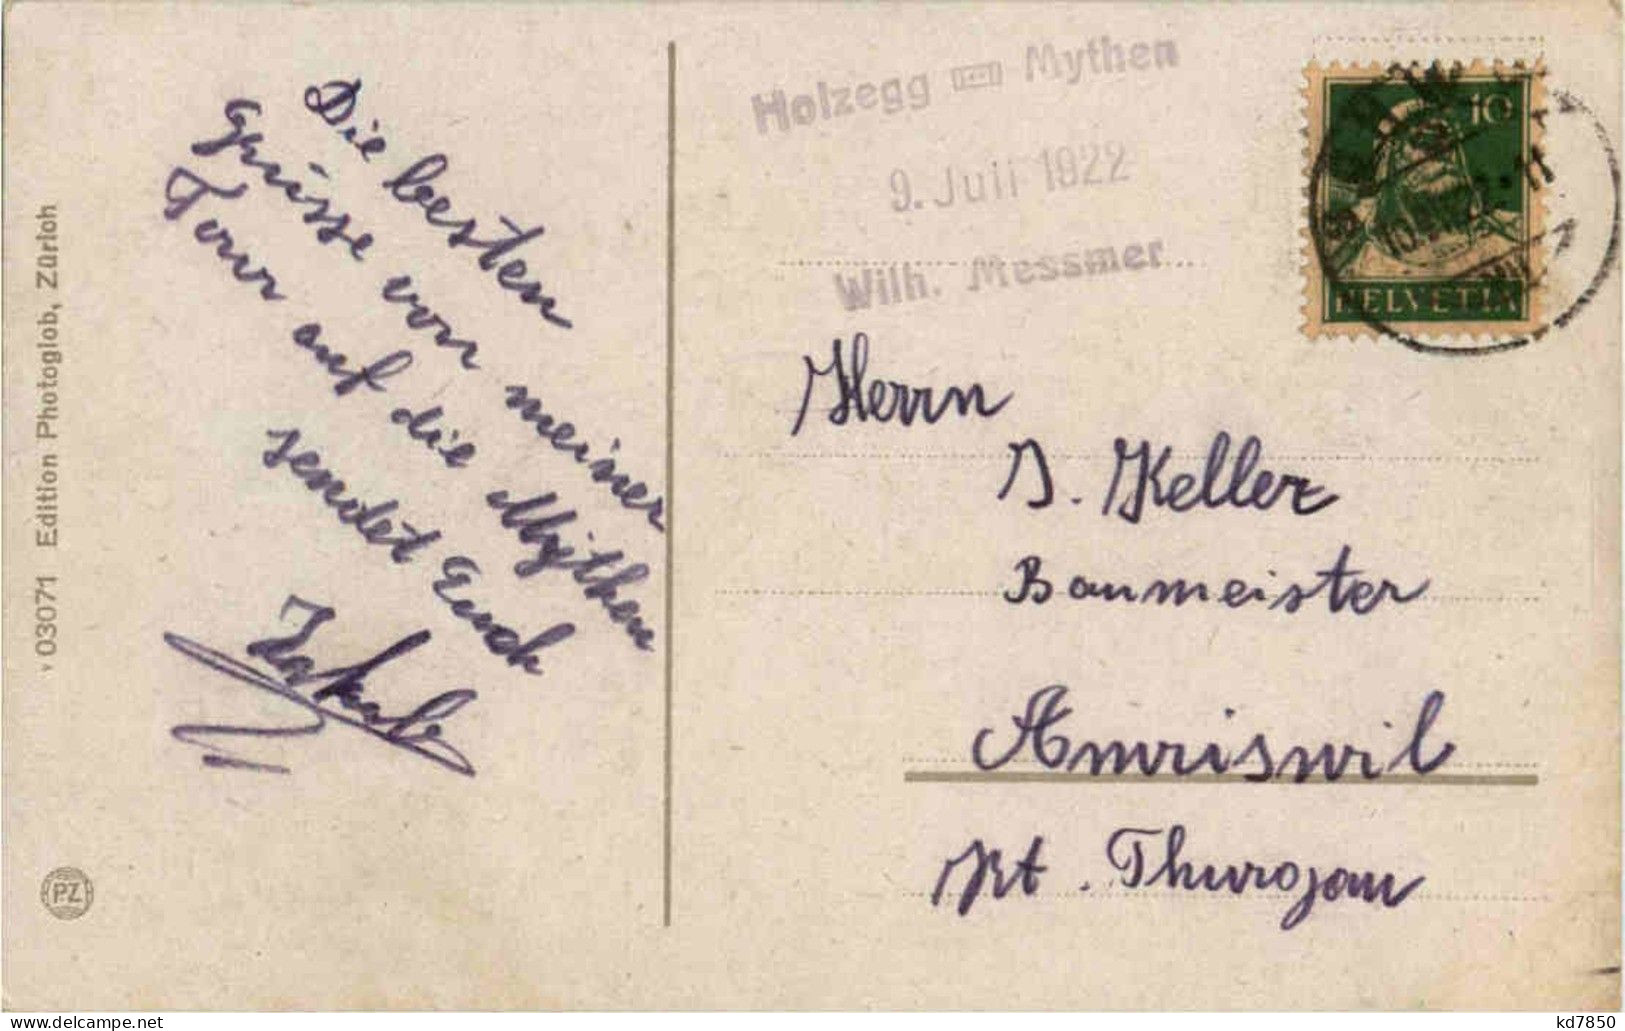 Die besten
Grüsse von meiner
Tour auf die Mythen
sendet Euch
Jakob
v 03071 Edition Photoglob, Zürich
PZ
Holzegg Mythen
9. Juli 1922
Wilh. Messmer
10
HELVETIA
Herrn
J. Keller
Baumeister
Amriswil
Kt. Thurgau
delcampe.net
kd7850